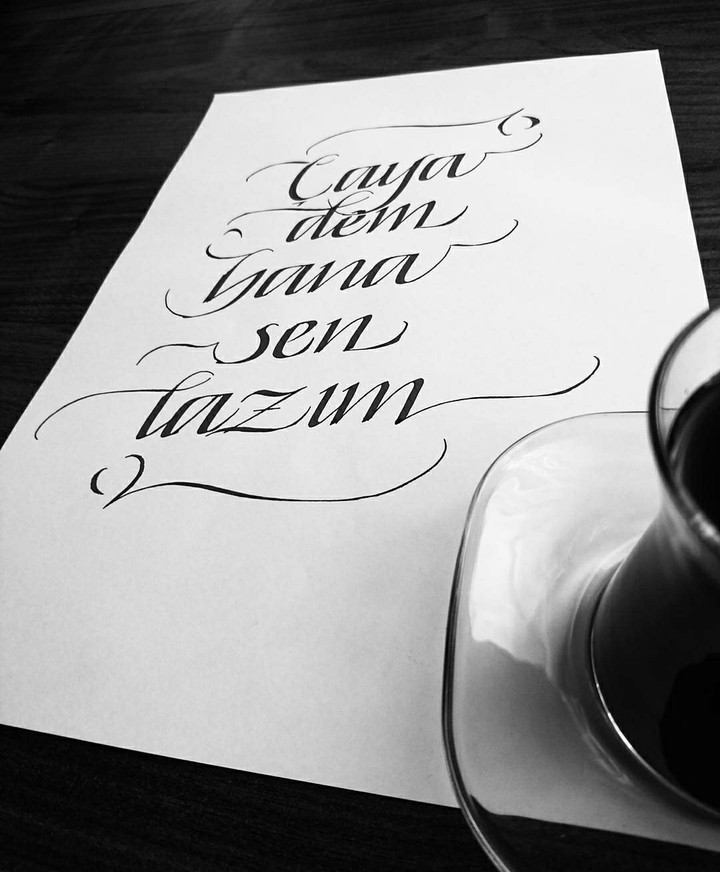 Çaya
dem
bana
sen
lazım